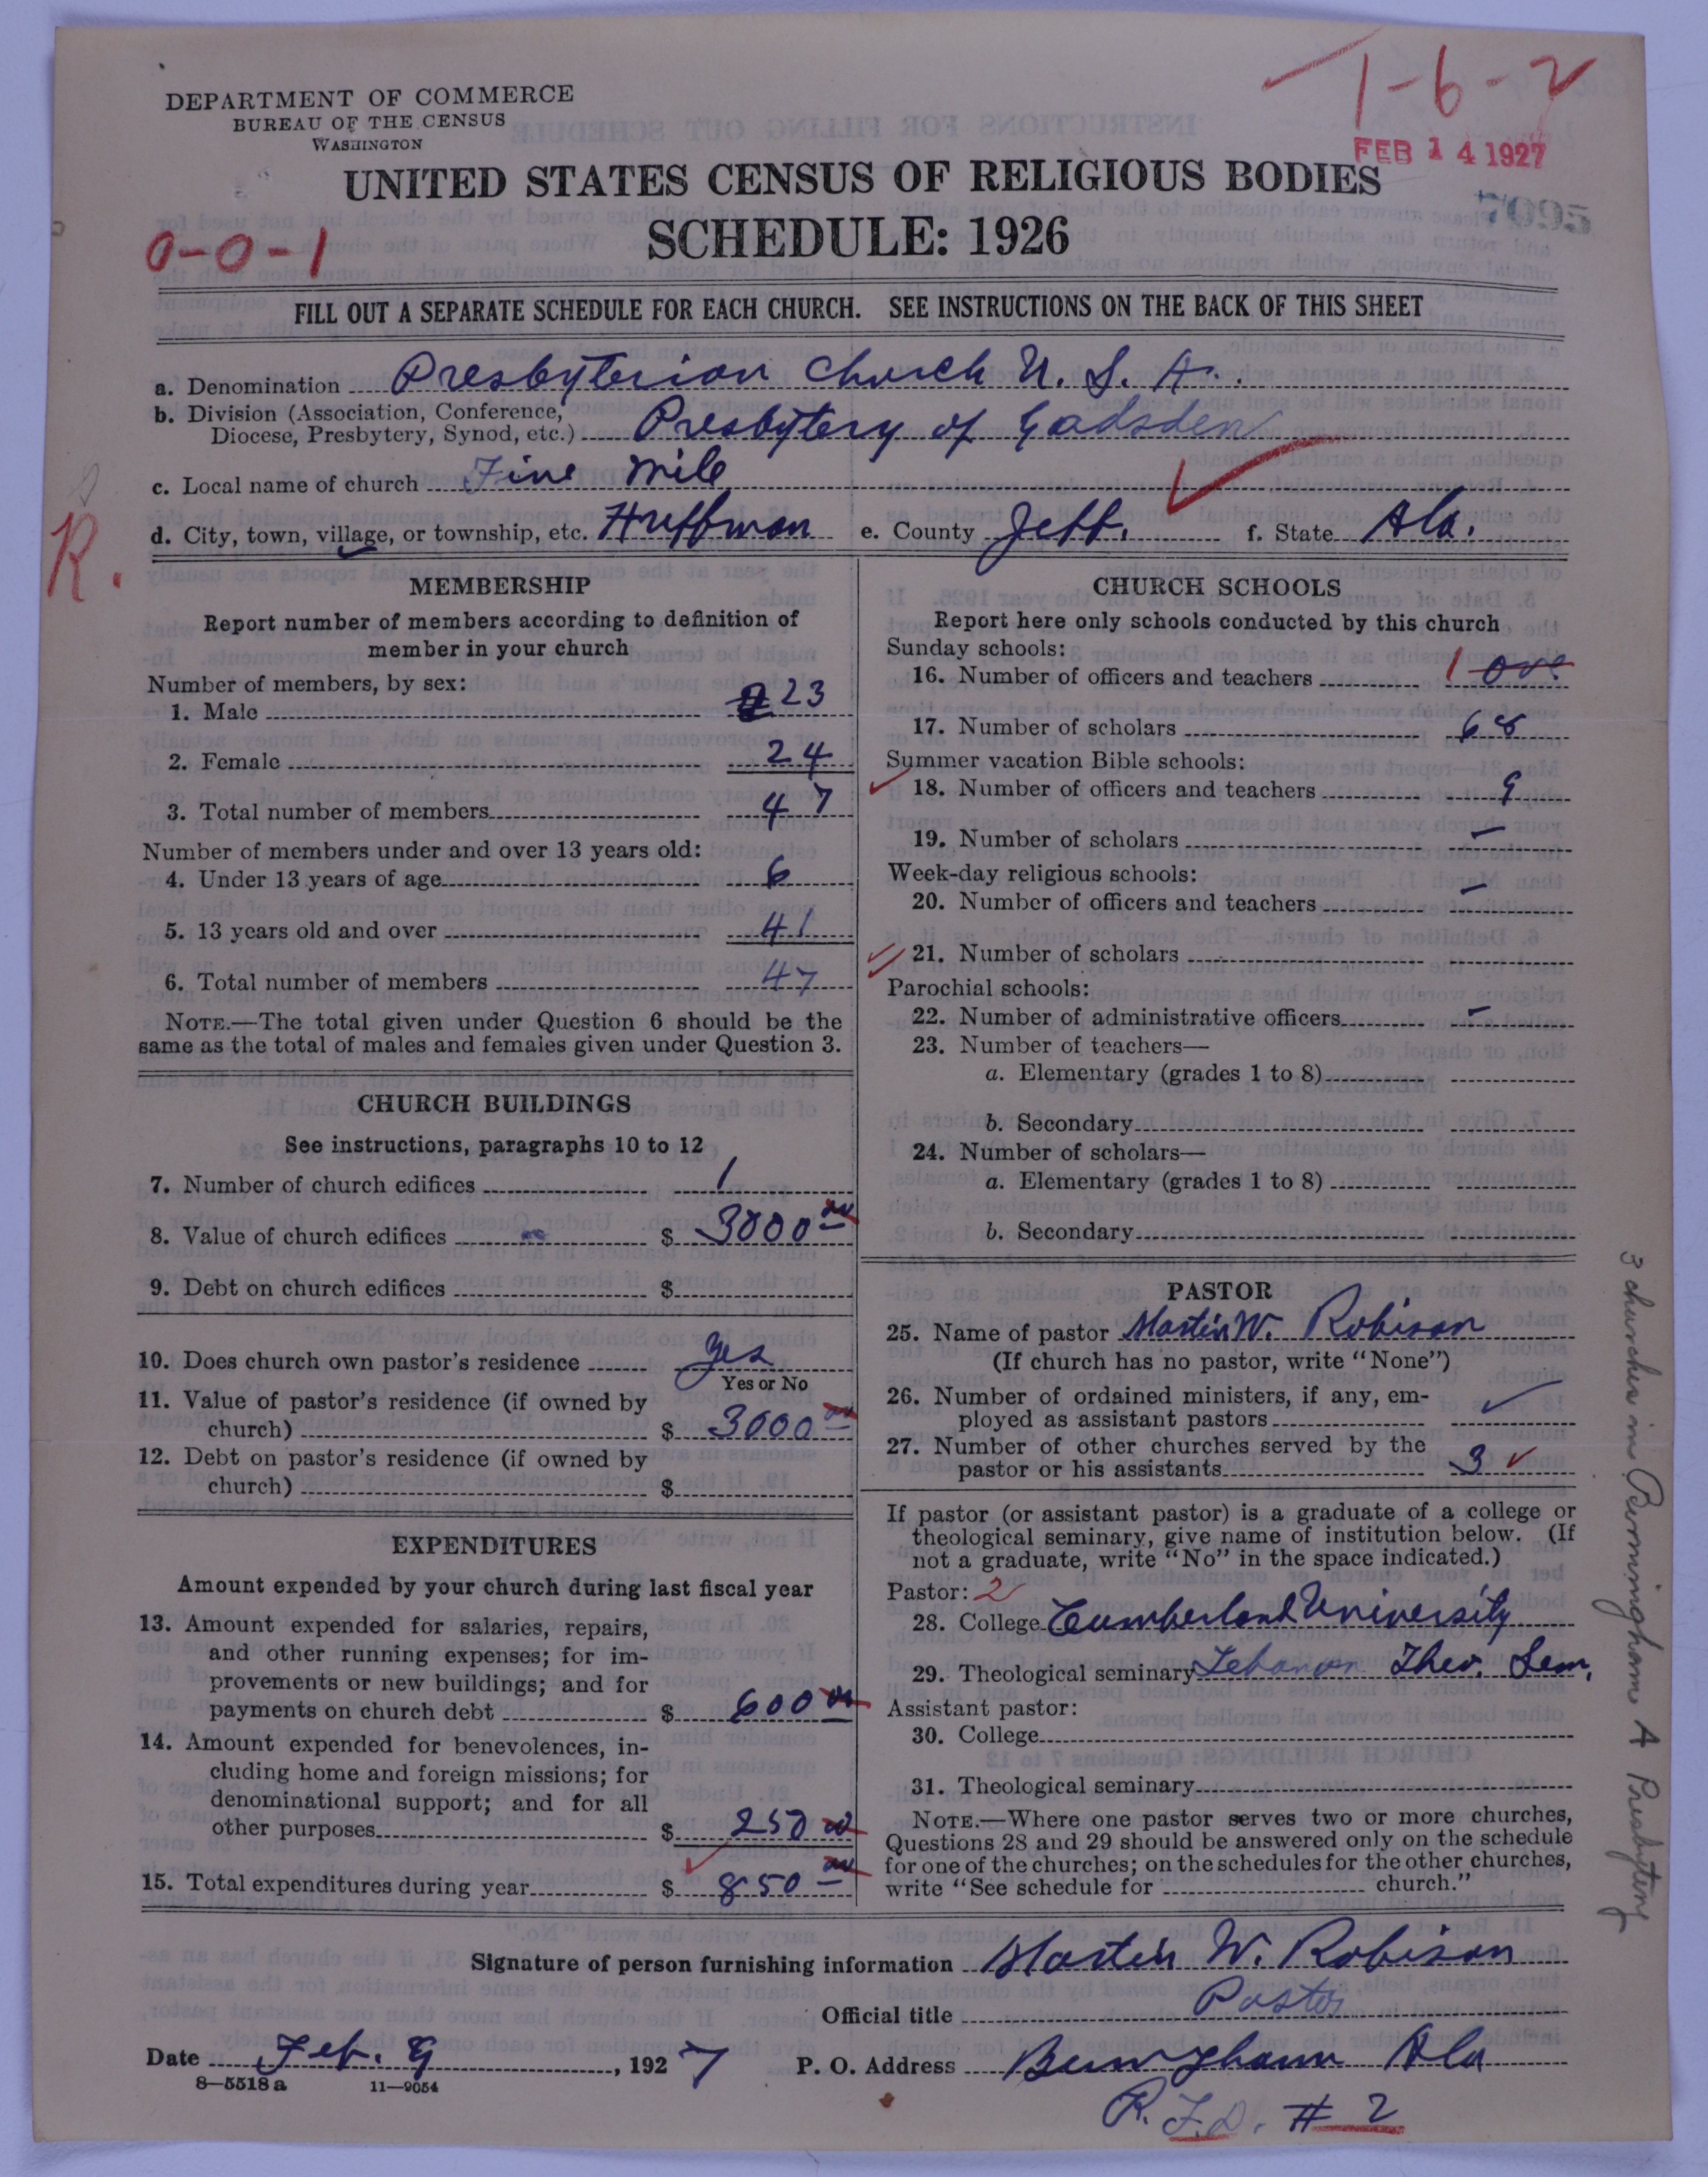 DEPARTMENT OF COMMERCE
BUREAU OF THE CENSUS
WASHINGTON
1-6-2
FEB 14 1927
UNITED STATES CENSUS OF RELIGIOUS BODIES
SCHEDULE: 1926
0-0-1
FILL OUT A SEPARATE SCHEDULE FOR EACH CHURCH. SEE INSTRUCTIONS ON THE BACK OF THIS SHEET
a. Denomination Presbyterian Church U. S. A.
b. Division (Association, Conference,
Diocese, Presbytery, Synod, etc.) Presbytery of Gadsden
c. Local name of church Five Mile
d. City, town, village, or township, etc. Huffman e. County Jeff. f. State Ala.
R.
MEMBERSHIP
Report number of members according to definition of
member in your church
Number of members, by sex:
1. Male 23
2. Female 24
3. Total number of members 47
Number of members under and over 13 years old:
4. Under 13 years of age 6
5. 13 years old and over 41
6. Total number of members 47
NOTE.—The total given under Question 6 should be the
same as the total of males and females given under Question 3.
CHURCH BUILDINGS
See instructions, paragraphs 10 to 12
7. Number of church edifices 1
8. Value of church edifices $ 3000 00
9. Debt on church edifices $
10. Does church own pastor's residence Yes
Yes or No
11. Value of pastor's residence (if owned by
church) $ 3000 00
12. Debt on pastor's residence (if owned by
church) $
EXPENDITURES
Amount expended by your church during last fiscal year
13. Amount expended for salaries, repairs,
and other running expenses; for im-
provements or new buildings; and for
payments on church debt $ 600 00
14. Amount expended for benevolences, in-
cluding home and foreign missions; for
denominational support; and for all
other purposes $ 250 00
15. Total expenditures during year $ 850 00
CHURCH SCHOOLS
Report here only schools conducted by this church
Sunday schools:
16. Number of officers and teachers 1 one
17. Number of scholars 68
Summer vacation Bible schools:
18. Number of officers and teachers 9
19. Number of scholars —
Week-day religious schools:
20. Number of officers and teachers —
21. Number of scholars
Parochial schools:
22. Number of administrative officers —
23. Number of teachers—
a. Elementary (grades 1 to 8)
b. Secondary
24. Number of scholars—
a. Elementary (grades 1 to 8)
b. Secondary
PASTOR
25. Name of pastor Martin W. Robison
(If church has no pastor, write "None")
26. Number of ordained ministers, if any, em-
ployed as assistant pastors
27. Number of other churches served by the
pastor or his assistants 3
If pastor (or assistant pastor) is a graduate of a college or
theological seminary, give name of institution below. (If
not a graduate, write "No" in the space indicated.)
Pastor: 2
28. College Cumberland University
29. Theological seminary Lebanon Theo. Sem.
Assistant pastor:
30. College
31. Theological seminary
NOTE.—Where one pastor serves two or more churches,
Questions 28 and 29 should be answered only on the schedule
for one of the churches; on the schedules for the other churches,
write "See schedule for church."
3 churches in Birmingham A Presbytery
Signature of person furnishing information Martin W. Robison
Official title Pastor
Date Feb. 9, 1927 P. O. Address Birmingham Ala
R. F. D. # 2
8—5518 a 11—9054